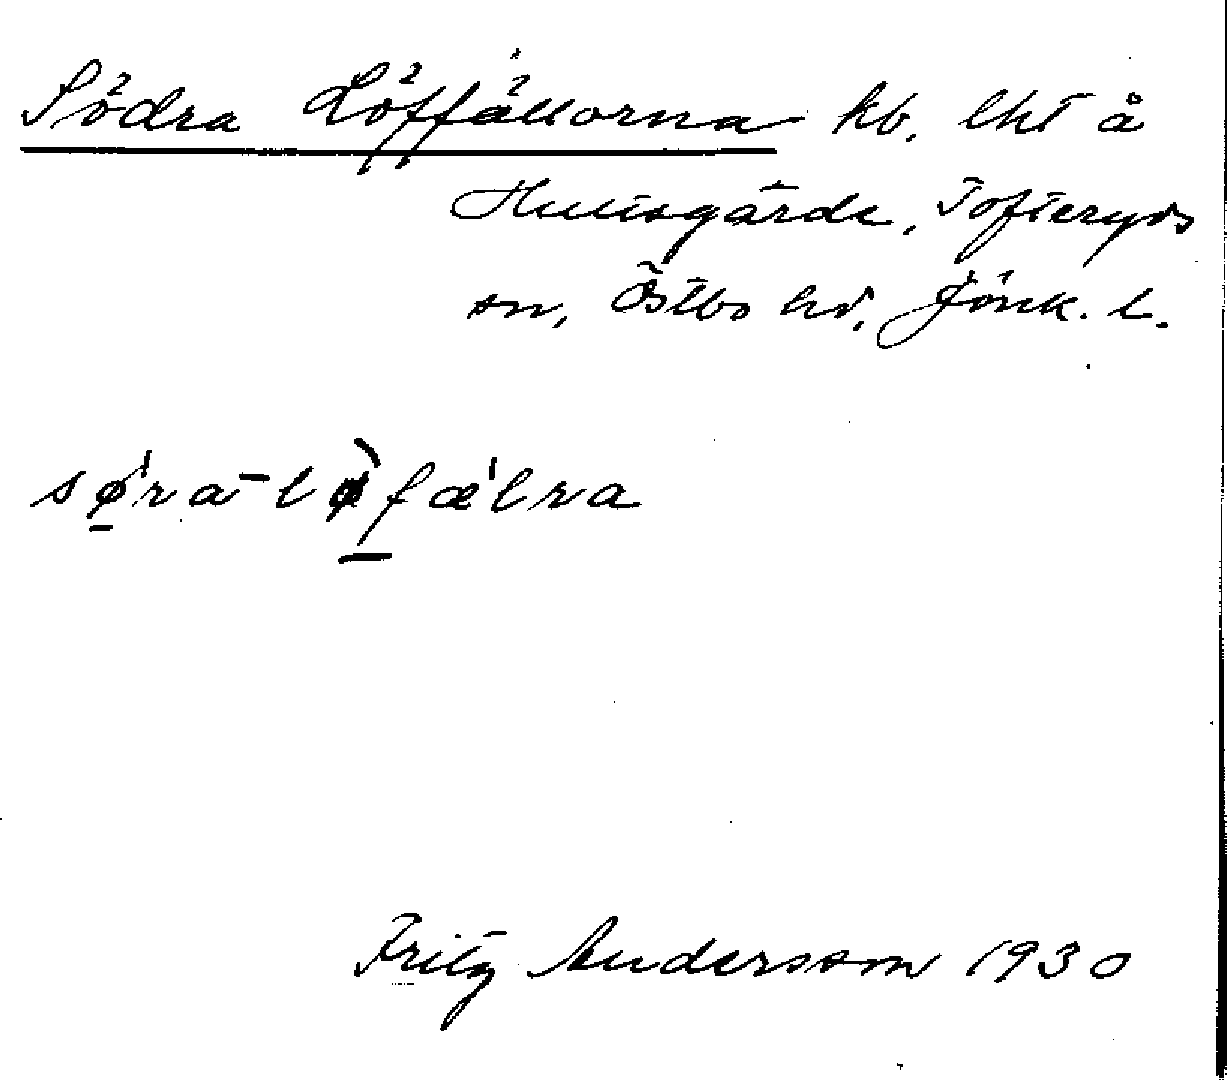 Södra Löffällorna kb. lht å
Hultsgärde, Tofteryds
sn, Östbo hd, Jönk. l.
sø̠ra-lø̠̀fælra
Fritz Andersson 1930